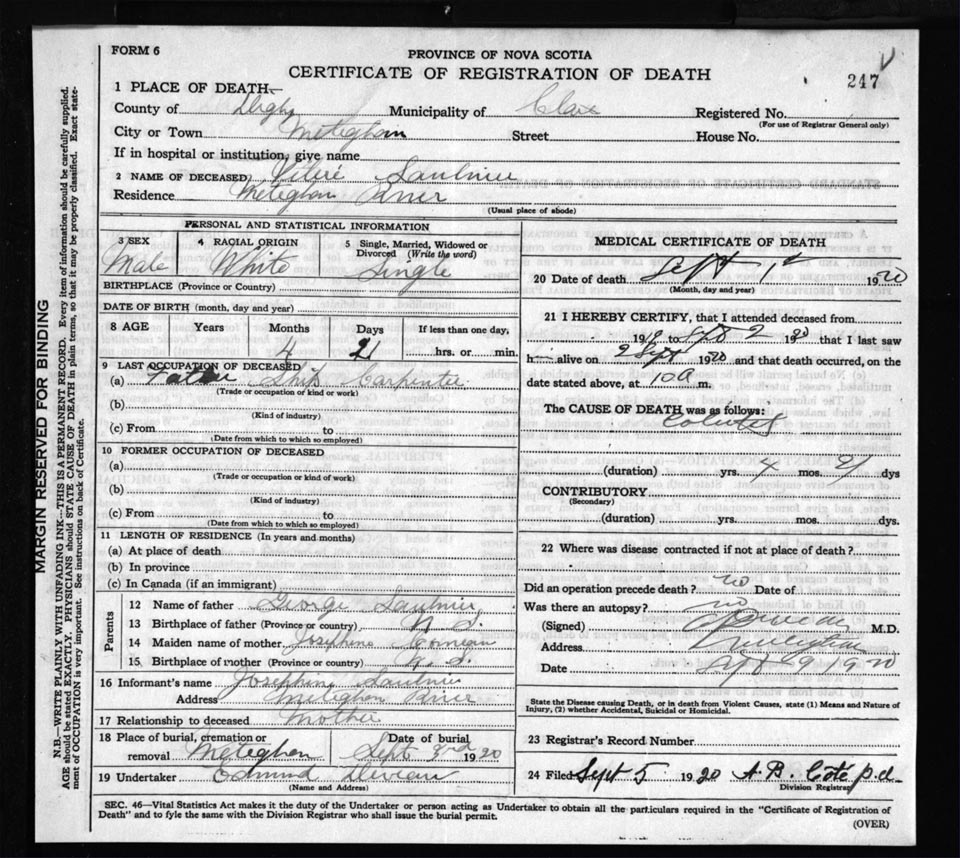 FORM 6
PROVINCE OF NOVA SCOTIA
CERTIFICATE OF REGISTRATION OF DEATH
247
1 PLACE OF DEATH—
County of Digby Municipality of Clare Registered No.
(For use of Registrar General only)
City or Town Meteghan Street House No.
If in hospital or institution, give name
2 NAME OF DECEASED, Saulnier
Residence Meteghan River
(Usual place of abode)
PERSONAL AND STATISTICAL INFORMATION
3 SEX 4 RACIAL ORIGIN 5 Single, Married, Widowed or Divorced (Write the word)
Male White Single
BIRTHPLACE (Province or Country)
DATE OF BIRTH (month, day and year)
8 AGE Years Months Days If less than one day,
4 21 hrs. or min.
9 LAST OCCUPATION OF DECEASED
(a) Father Ship Carpenter
(Trade or occupation or kind or work)
(b)
(Kind of industry)
(c) From to
(Date from which to which so employed)
10 FORMER OCCUPATION OF DECEASED
(a)
(Trade or occupation or kind of work)
(b)
(Kind of industry)
(c) From to
(Date from which to which so employed)
11 LENGTH OF RESIDENCE (In years and months)
(a) At place of death
(b) In province
(c) In Canada (if an immigrant)
Parents
12 Name of father George Saulnier
13 Birthplace of father (Province or country) N.S.
14 Maiden name of mother Josephine
15 Birthplace of mother (Province or country) N.S.
16 Informant's name Josephine Saulnier
Address Meteghan River
17 Relationship to deceased Mother
18 Place of burial, cremation or removal Meteghan Date of burial Sept 3rd 1920
19 Undertaker Edmund Deveau
(Name and Address)
MEDICAL CERTIFICATE OF DEATH
20 Date of death Sept 1st 1920
(Month, day and year)
21 I HEREBY CERTIFY, that I attended deceased from
19 to Sept 2 1920 that I last saw
h alive on 2 Sept 1920 and that death occurred, on the
date stated above, at 10 a m.
The CAUSE OF DEATH was as follows:
(duration) yrs. 4 mos. 21 dys
CONTRIBUTORY
(Secondary)
(duration) yrs. mos. dys.
22 Where was disease contracted if not at place of death?
Did an operation precede death? no Date of
Was there an autopsy? no
(Signed) M.D.
Address
Date Sept 9 1920
State the Disease causing Death, or in death from Violent Causes, state (1) Means and Nature of
Injury, (2) whether Accidental, Suicidal or Homicidal.
23 Registrar's Record Number
24 Filed Sept 5 1920 A. B. Côté
Division Registrar
SEC. 46—Vital Statistics Act makes it the duty of the Undertaker or person acting as Undertaker to obtain all the particulars required in the "Certificate of Registration of
Death" and to fyle the same with the Division Registrar who shall issue the burial permit.
(OVER)
MARGIN RESERVED FOR BINDING
N.B.—WRITE PLAINLY WITH UNFADING INK—THIS IS A PERMANENT RECORD. Every item of information should be carefully supplied.
AGE should be stated EXACTLY. PHYSICIANS should STATE CAUSE OF DEATH in plain terms, so that it may be properly classified. Exact state-
ment of OCCUPATION is very important. See instructions on back of Certificate.